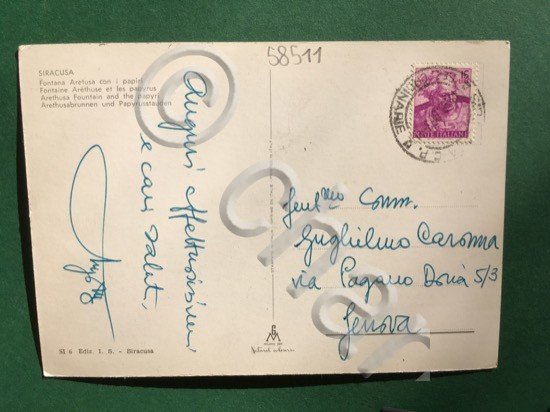 58511
SIRACUSA
Fontana Aretusa con i papiri
Fontaine Aréthuse et les papyrus
Arethusa Fountain and the papyri
Arethusabrunnen und Papyrusstauden
Auguri affettuosissimi
e cari saluti,
15
POSTE ITALIANE
Gent.mo Comm.
Guglielmo Caronna
via Pagano Doria 5/3
Genova
SI 6 Ediz. I. S. - Siracusa
©